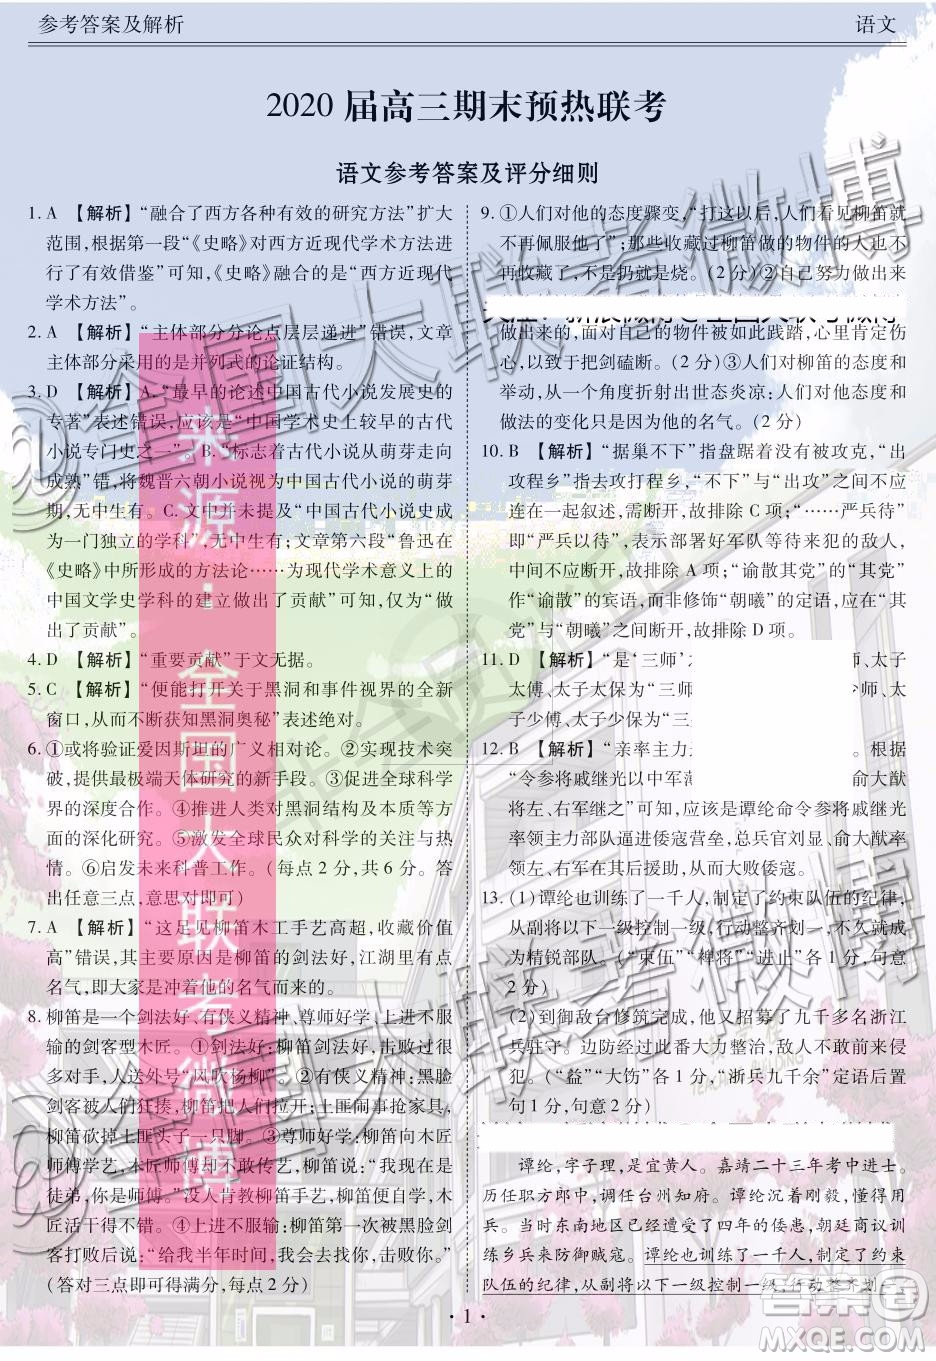 参考答案及解析
语文
2020 届高三期末预热联考
语文参考答案及评分细则
1. A 【解析】“融合了西方各种有效的研究方法”扩大
范围,根据第一段“《史略》对西方近现代学术方法进
行了有效借鉴”可知,《史略》融合的是“西方近现代
学术方法”。
2. A 【解析】“主体部分分论点层层递进”错误,文章
主体部分采用的是并列式的论证结构。
3. D 【解析】A.“最早的论述中国古代小说发展史的
专著”表述错误,应该是“中国学术史上较早的古代
小说专门史之一”。B.“标志着古代小说从萌芽走向
成熟”错,将魏晋六朝小说视为中国古代小说的萌芽
期,无中生有。C. 文中并未提及“中国古代小说史成
为一门独立的学科”,无中生有;文章第六段“鲁迅在
《史略》中所形成的方法论……为现代学术意义上的
中国文学史学科的建立做出了贡献”可知,仅为“做
出了贡献”。
4. D 【解析】“重要贡献”于文无据。
5. C 【解析】“便能打开关于黑洞和事件视界的全新
窗口,从而不断获知黑洞奥秘”表述绝对。
6. ①或将验证爱因斯坦的广义相对论。②实现技术突
破,提供最极端天体研究的新手段。③促进全球科学
界的深度合作。④推进人类对黑洞的本质等等方
面的深化研究。⑤激发全球民众对科学的关注与热
情。⑥启发未来科普工作。(每点 2 分,共 6 分。答
出任意三点,意思对即可)
7. A 【解析】“这足见柳笛木工手艺高超,收藏价值
高”错误,其主要原因是柳笛的剑法好,江湖里有点
名气,即大家是冲着他的名气而来的。
8. 柳笛是一个剑法好、有侠义精神、尊师好学、上进不服
输的剑客型木匠。①剑法好:柳笛的剑法好,罕遇对
手,人送外号“风吹杨柳”。②有侠义精神:黑脸
剑客被人们狂揍,柳笛把人们拉开;土匪闹事抢家具,
柳笛砍掉土匪头子一只脚。③尊师好学:柳笛向木匠
师傅学艺,木匠师傅却说“论剑法,我不是
徒弟,你是师傅”。没人肯教柳笛手艺,柳笛便自学,木
匠活干得不错。④上进不服输:柳笛第一次被黑脸剑
客打败后说:“给我半年时间,我会去找你,击败你。”
(答对三点即可得满分,每点 2 分)
9. ①人们对他的态度骤变,“打这以后,人们看见柳笛就
不再佩服他了”;那些收藏过柳笛做的物件的人也不
再收藏了,不是扔就是烧。(2 分)②自己努力做出来
做出来的,面对自己的物件被如此践踏,心里肯定伤
心,以致于把剑磕断。(2 分)③人们对柳笛的态度和
举动,从一个角度折射出世态炎凉:人们对他态度和
做法的变化只是因为他的名气。(2 分)
10. B 【解析】“据巢不下”指盘踞着没有被攻克,“出
攻程乡”指出去攻打程乡,“不下”与“出攻”之间不应
连在一起叙述,需断开,故排除 C 项;“……严兵待”
即“严兵以待”,表示部署好军队等待来犯的敌人,
中间不应断开,故排除 A 项;“谕散其党”的“其党”
作“谕散”的宾语,而非修饰“朝曦”的定语,应在“其
党”与“朝曦”之间断开,故排除 D 项。
11. D 【解析】“是‘三师’
师、太子
太傅、太子太保为“三师”
少师、太子
少傅、太子少保为“三
12. B 【解析】“亲率主力
。根据
“令参将戚继光以中军薄
俞大猷
将左、右军继之”可知,应该是谭纶命令参将戚继光
率领主力部队逼进倭寇营垒,总兵官刘显、俞大猷率
领左、右军在其后援助,从而大败倭寇。
13. (1)谭纶也训练了一千人,制定了约束队伍的纪律,
从副将以下一级控制一级,行动整齐划一,不久就成
为精锐部队。(“束伍”“裨将”“进止”各 1 分,句意
2 分)
(2)到御敌台修筑完成,他又招募了九千多名浙江
兵驻守。边防经过此番大力整治,敌人不敢轻易进
犯。(“益”“大饬”各 1 分,“浙兵九千余”定语后置
句1分,句意 2 分)
谭纶,字子理,是宜黄人。嘉靖二十三年考中进士。
历任职方郎中,调任台州知府。谭纶沉着刚毅,懂得用
兵。当时东南地区已经遭受了四年的倭患,朝廷商议训
练乡兵来防御贼寇。谭纶也训练了一千人,制定了约束
队伍的纪律,从副将以下一级控制一级,行动整齐划一
· 1 ·
来源:全国大联考微博
@全国大联考微博
答案圈
MXQE.COM